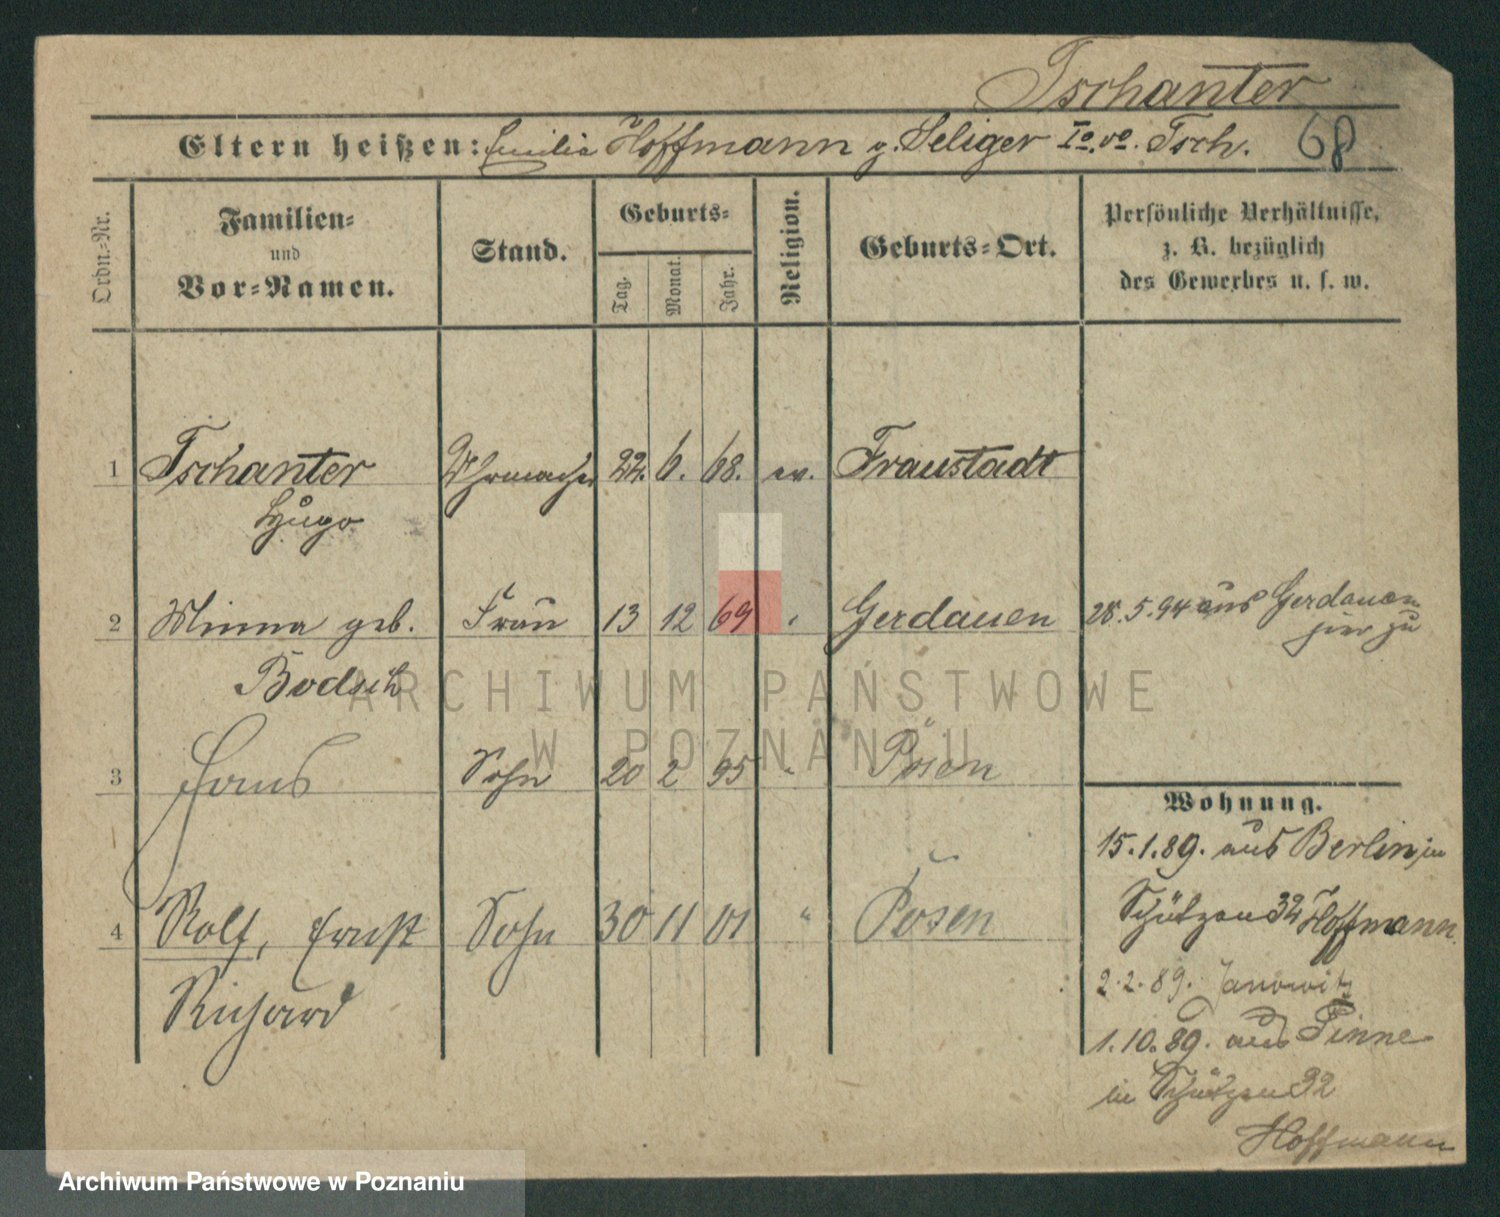 Tschanter
Eltern heißen: Emilie Hoffmann g. Seliger Io. vo. Tsch. 68
Ordn.-Nr.
Familien-
und
Vor-Namen.
Stand.
Geburts-
Tag.
Monat.
Jahr.
Religion.
Geburts-Ort.
Persönliche Verhältnisse,
z. B. bezüglich
des Gewerbes u. s. w.
1 Tschanter Uhrmacher 22. 6. 68. ev. Fraustadt
Hugo
2 Minna geb. Frau 13 12 69 " Gerdauen 28.5.94 aus Gerdauen
hier zu
Bodsch
ARCHIWUM PAŃSTWOWE
W POZNANIU
3 Hans Sohn 20 2 95 " Posen
Wohnung.
15.1.89. aus Berlin in
4 Rolf, Ernst Sohn 30 11 01 " Posen
Richard
Schützen 32 Hoffmann
2.2.89. Janowitz
1.10.89. aus Pinne
in Schützen 32
Hoffmann
Archiwum Państwowe w Poznaniu